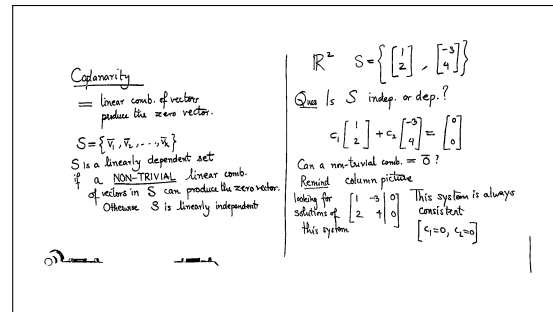 Coplanarity
= linear comb. of vectors
produce the zero vector.
S = { v̅₁, v̅₂, . . ., v̅ₖ }
S is a linearly dependent set
if a NON-TRIVIAL linear comb.
of vectors in S can produce the zero vector.
Otherwise S is linearly independent
ℝ² S = { [1 2], [-3 4] }
Ques Is S indep. or dep.?
c₁ [1 2] + c₂ [-3 4] = [0 0]
Can a non-trivial comb. = 0̅ ?
Remind column picture
looking for solutions of this system [1 -3 | 0
2 4 | 0] This system is always
consistent
[c₁=0, c₂=0]